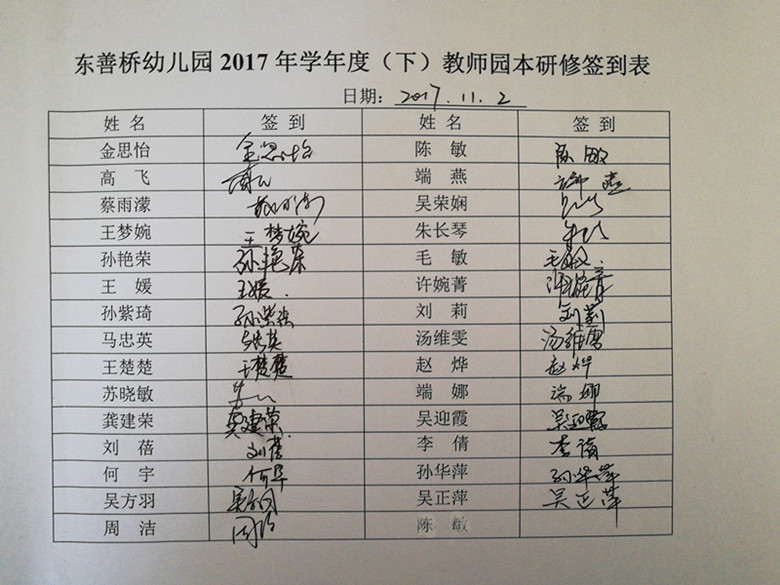 东善桥幼儿园 2017 年学年度（下）教师园本研修签到表
日期：2017.11.2
姓 名 签 到 姓 名 签 到
金思怡 金思怡 陈 敏 陈敏
高 飞 高飞 端 燕 端燕
蔡雨濛 吴荣娴
王梦婉 王梦婉 朱长琴
孙艳荣 孙艳荣 毛 敏 毛敏
王 媛 王媛. 许婉菁 许婉菁
孙紫琦 孙紫琦 刘 莉 刘莉
马忠英 汤维雯 汤维雯
王楚楚 王楚楚 赵 烨 赵烨
苏晓敏 端 娜 端娜
龚建荣 龚建荣 吴迎霞 吴迎霞
刘 蓓 刘蓓 李 倩 李倩
何 宇 何宇 孙华萍 孙华萍
吴方羽 吴正萍 吴正萍
周 洁 周洁 陈 敏